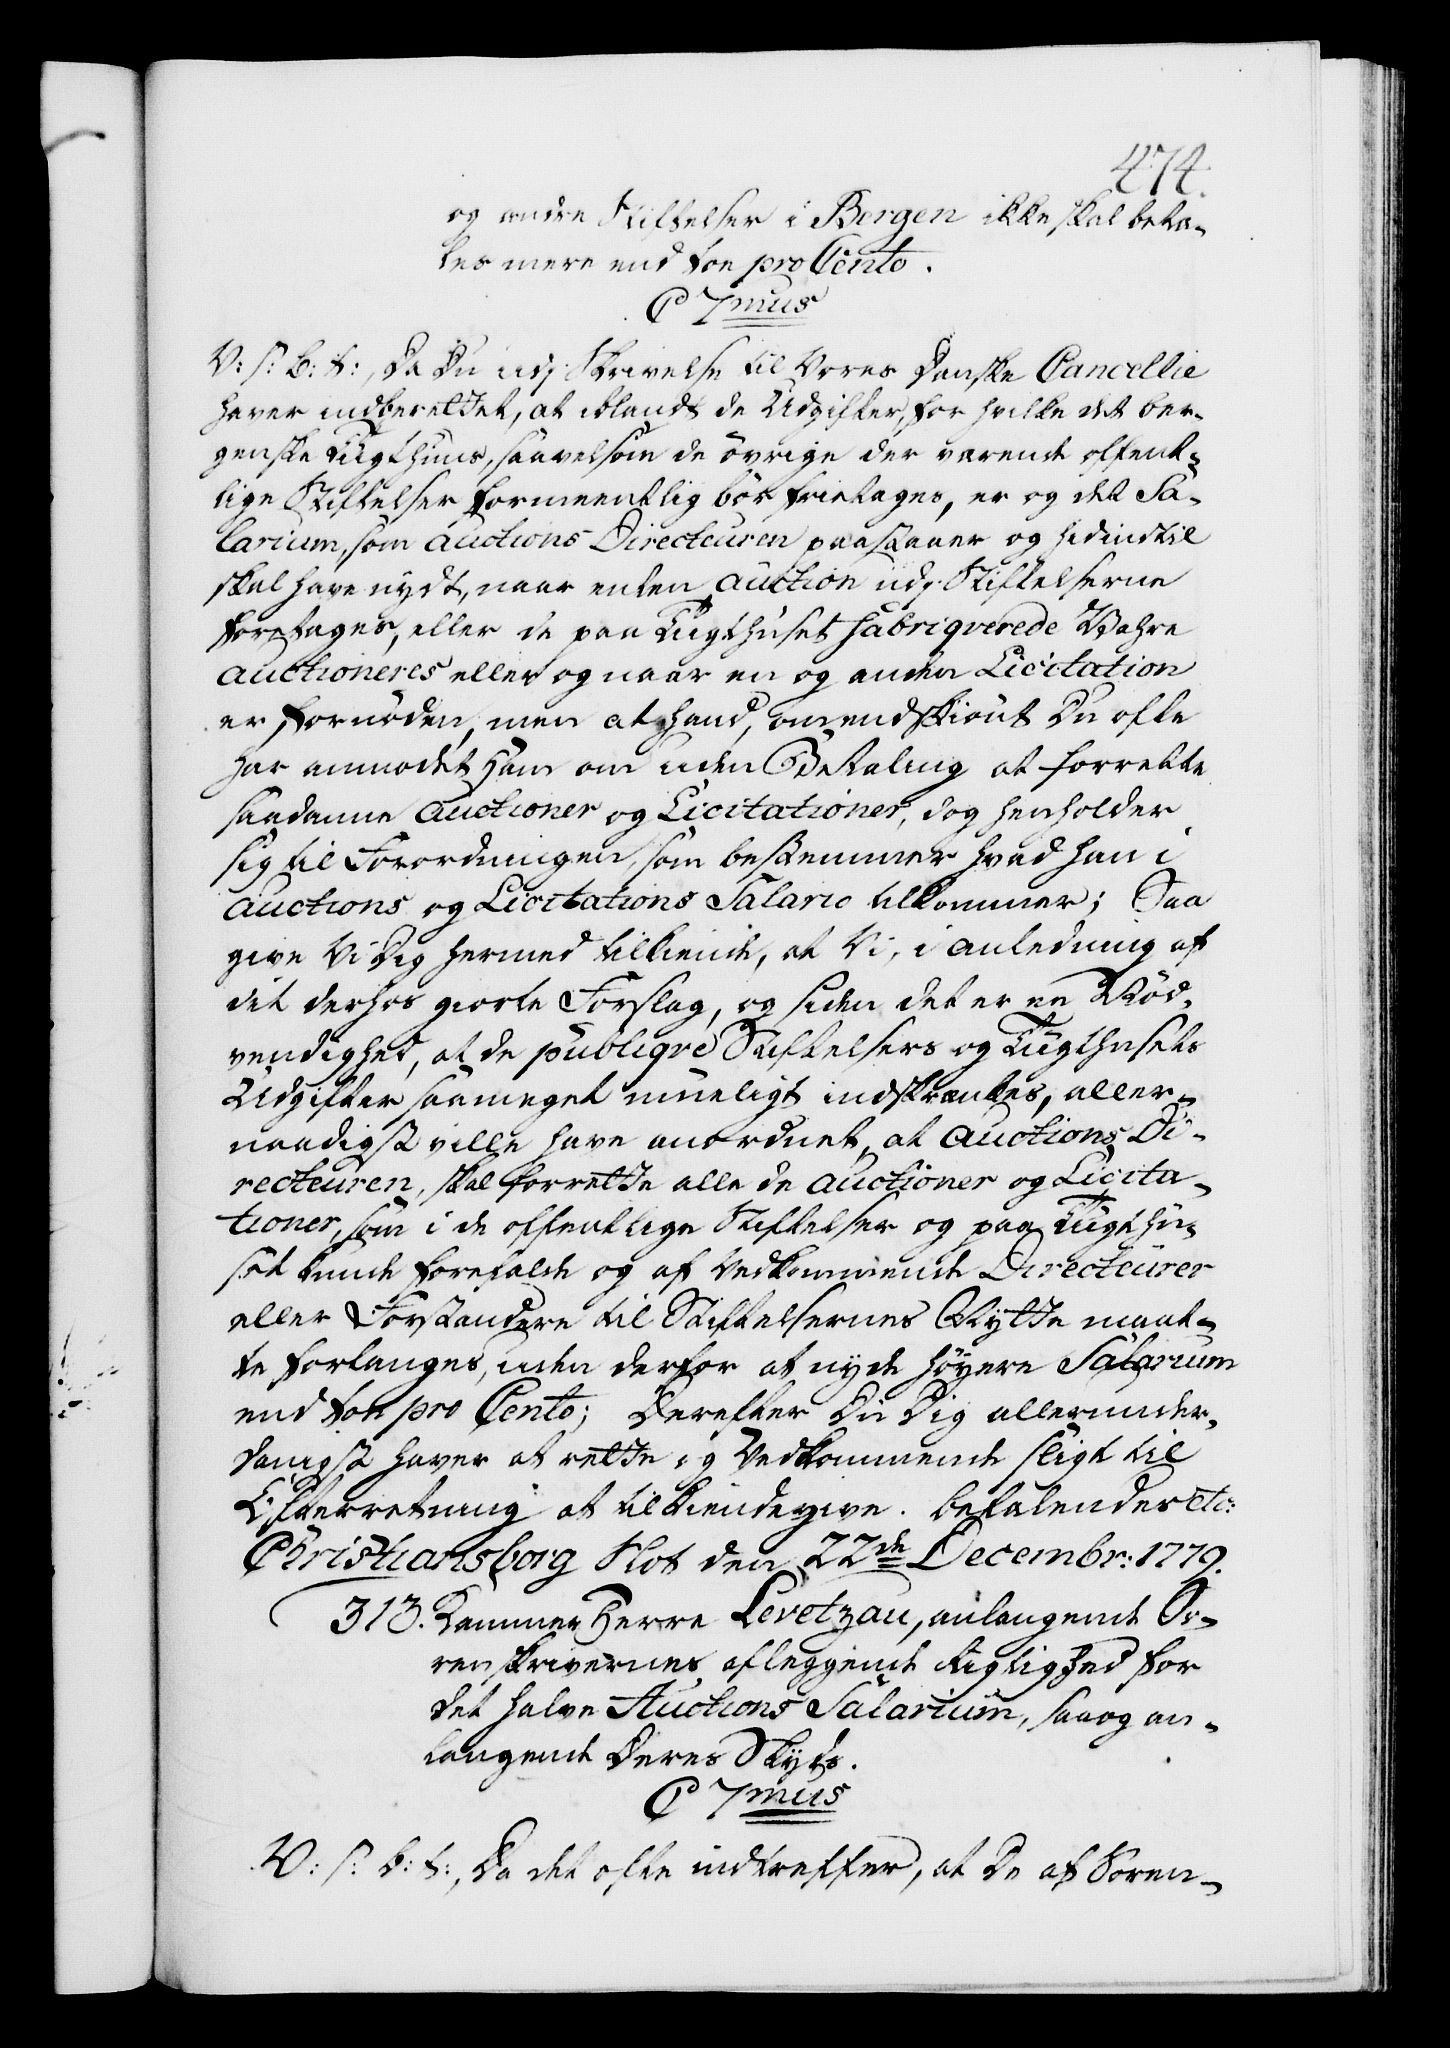 474.
og andre Stiftelser i Bergen ikke skal beta-
les mere end toe pro Cento.
C 7mus
V: s: b: t:, Da Du udj Skrivelse til Vores Danske Cancellie
haver indberettet, at iblandt de Udgifter, for hvilke det ber-
genske Tugthuus, saavelsom de övrige der værende offent-
lige Stiftelser formeentlig bör frietages, er og det Sa-
larium, som Auctions Directeuren paastaaer og hidindtil
skal have nydt, naar enten Auction udj Stiftelserne
foretages, eller de paa Tugthuset fabriqverede Wahre
auctioneres eller og naar en og anden Licitation
er fornöden, men at hand, omendskiönt Du ofte
har anmodet Ham om uden Betaling at forrette
saadanne Auctioner og Licitationer, dog henholder
sig til Forordningen, som bestemmer hvad han i
Auctions og Licitations Salario tilkommer; Saa
give Vi Dig hermed tilkiende, at Vi, i Anledning af
dit derhos giorte Forslag, og siden det er en Nöd-
vendighed, at de publiqve Stiftelsers og Tugthusets
Udgifter saameget mueligt indskrænkes, aller-
naadigst ville have anordnet, at Auctions Di-
recteuren, skal forrette alle de Auctioner og Licita-
tioner, som i de offentlige Stiftelser og paa Tugthu-
set kunde forefalde og af Vedkommende Directeurer
eller Forstandere til Stiftelsernes Nytte maat-
te forlanges, uden derfor at nyde höyere Salarium
end toe pro Cento; Derefter Du Dig allerunder-
danigst haver at rette og Vedkommende sligt til
Efterretning at tilkiendegive. Befalendes etc:
Christiansborg Slot den 22de Decembr: 1779.
313. Kammer Herre Levetzau, anlangende So-
renskrivernes aflæggende Rigtighed for
det halve Auctions Salarium, saa og an-
langende Deres Skyds.
C 7mus
V: s: b: t:, Da det ofte indtreffer, at De af Soren-